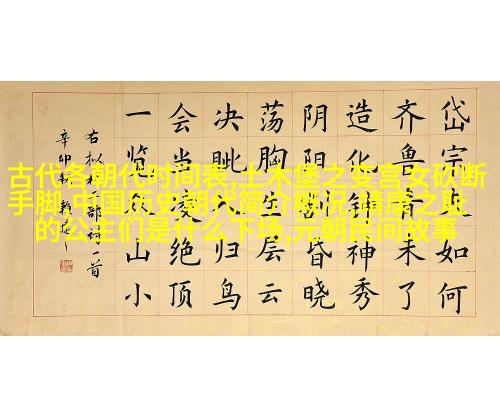 古代各朝代时间表,土木堡之变宫女砍断
手脚,中国历史朝代简介概况,靖康之耻
的公主们是什么下场,元朝民间故事
岱宗夫如何
齐鲁青未了
造化钟神秀
阴阳割昏晓
荡胸生层云
决眦入归鸟
会当凌绝顶
一览众山小
右拟部诗一首
辛卯